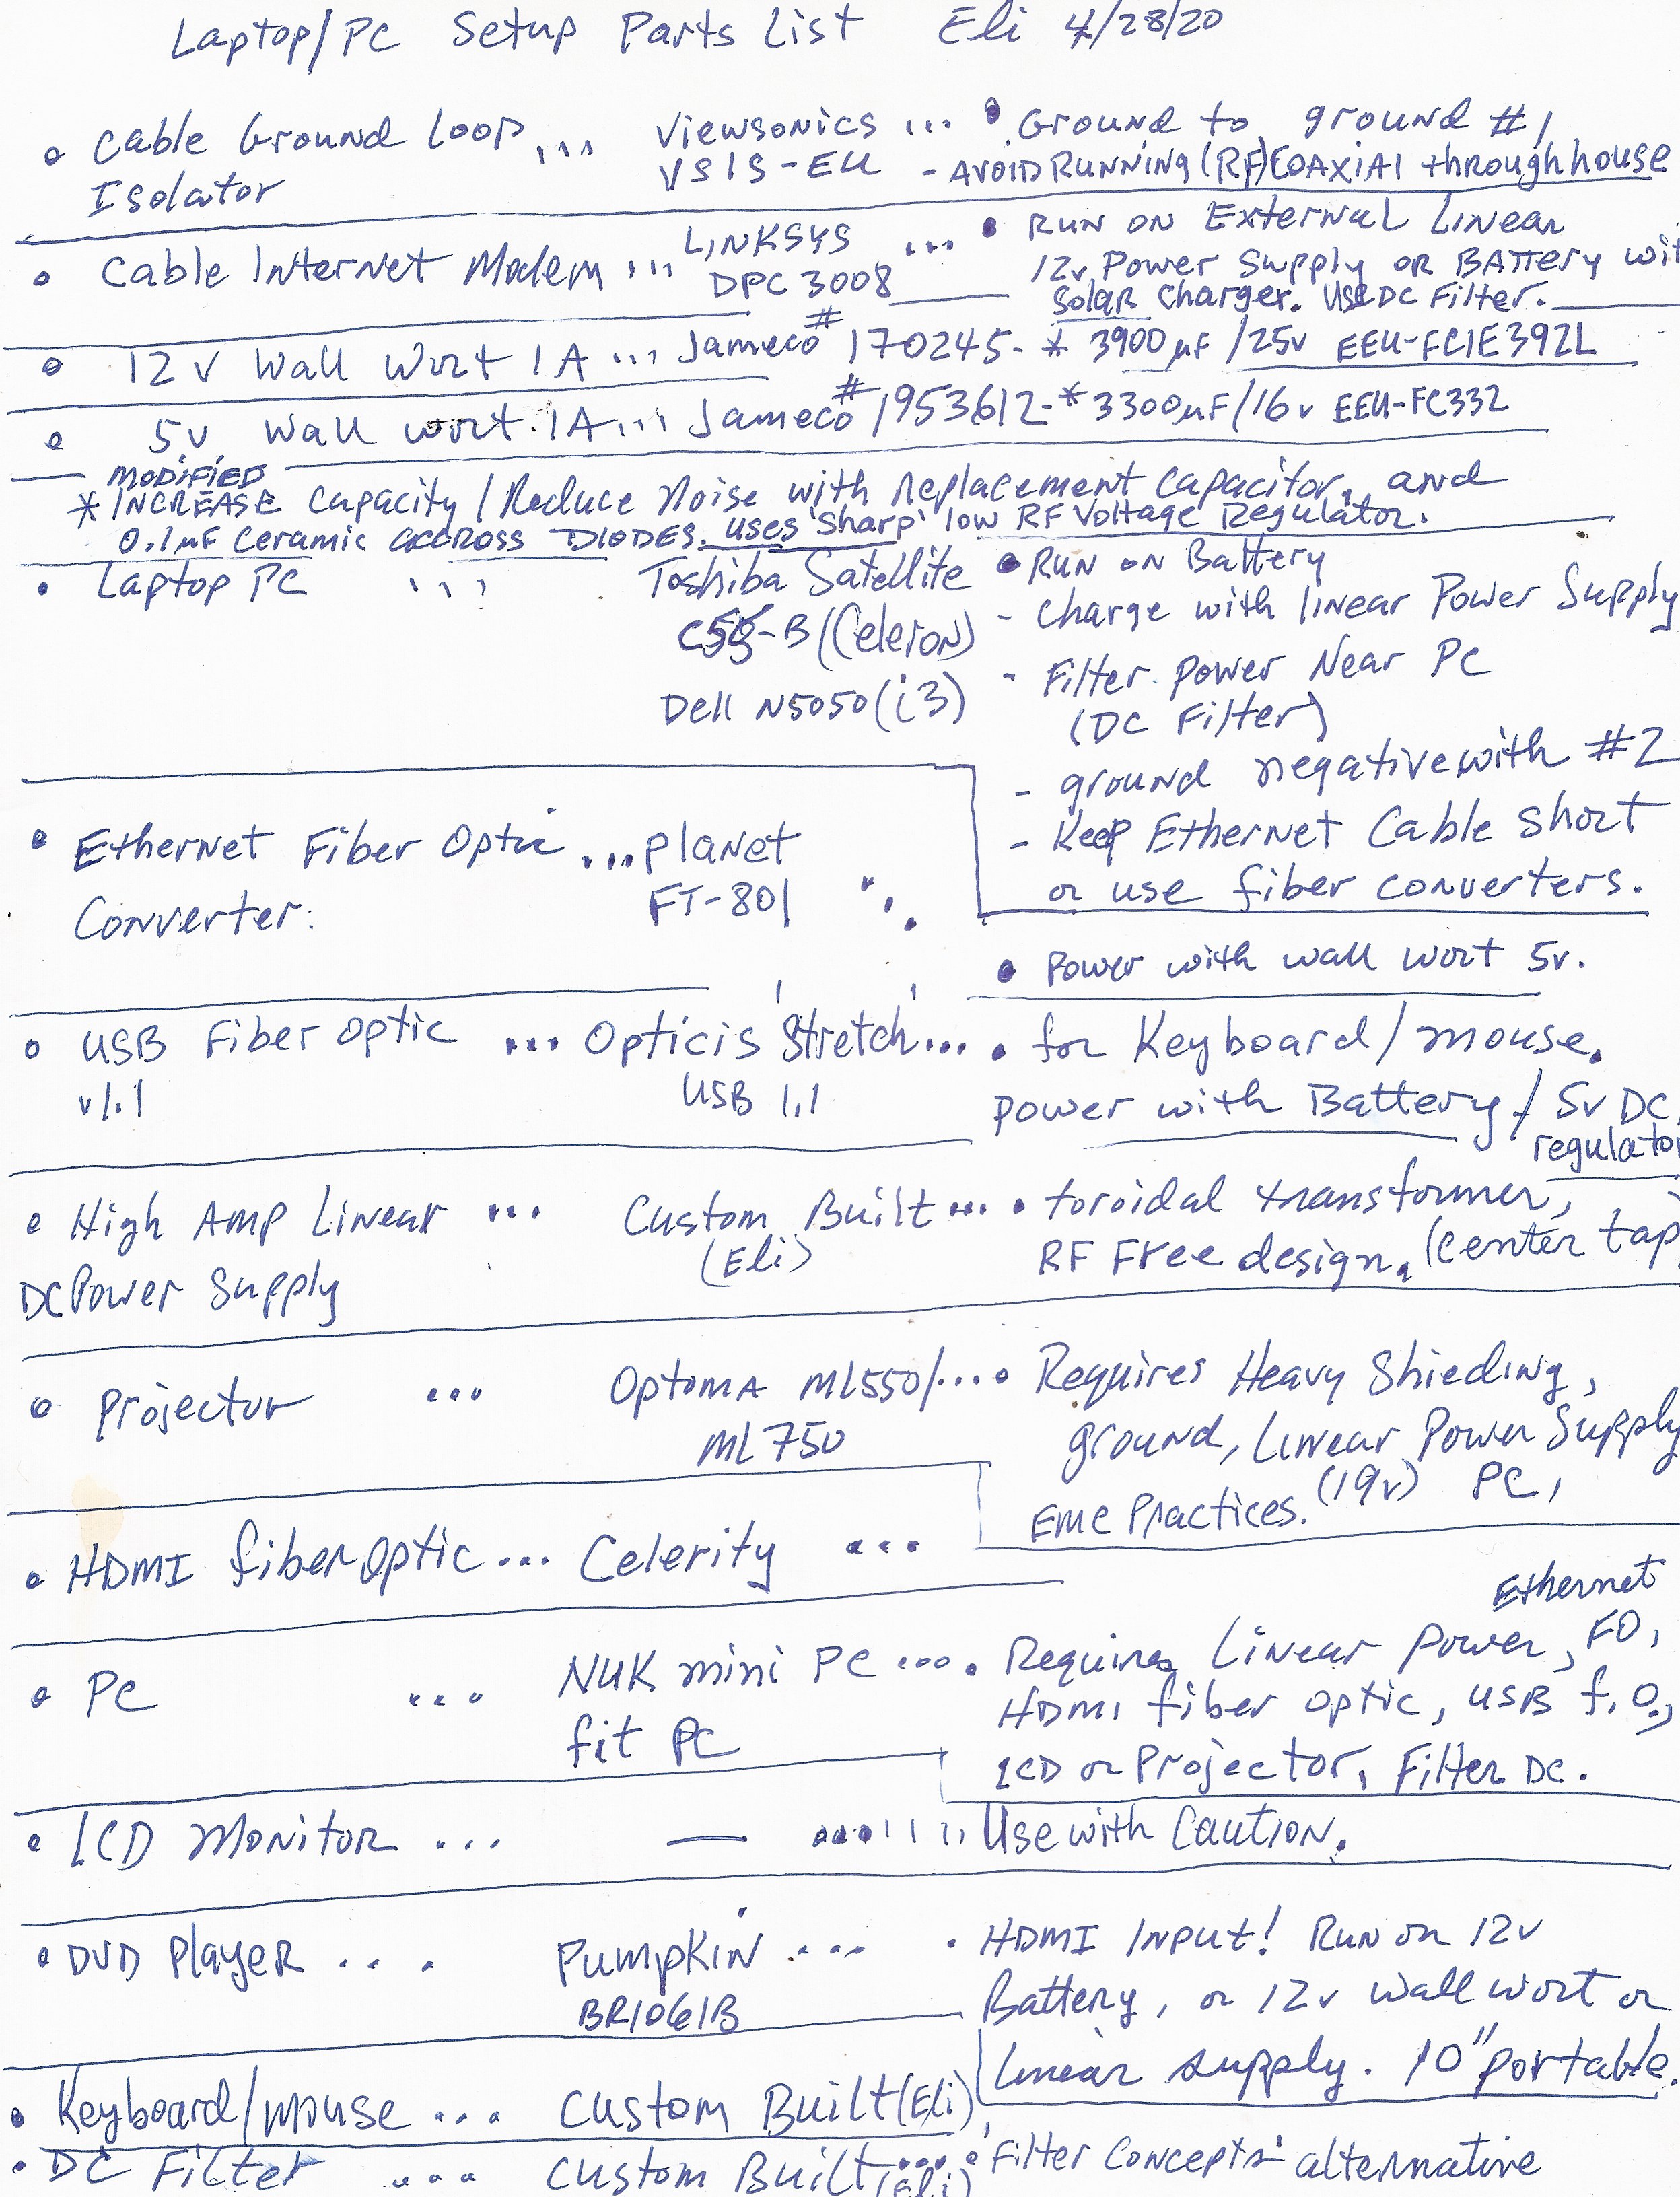 Laptop/PC Setup Parts List Eli 4/28/20
• Cable Ground Loop ... Viewsonics ... • Ground to ground #1,
Isolator VSIS-EU - AVOID RUNNING (RF) COAXIAl through house
• Cable Internet Modem ... LINKSYS ... • RUN ON External Linear
DPC 3008 12v Power Supply OR BATTery wit
Solar Charger. Use DC Filter.
• 12v Wall Wort 1A ... Jameco # 170245 - * 3900µF /25v EEU-FC1E392L
• 5v Wall wort 1A ... Jameco # 1953612 - * 3300µF/16v EEU-FC332
MODIFIED
* INCREASE Capacity / Reduce Noise with Replacement Capacitor, and
0.1mF Ceramic accross DIODES. uses 'Sharp' low RF Voltage Regulator.
• Laptop PC ... Toshiba Satellite • RUN on Battery
C55-B (Celeron) - Charge with linear Power Supply
Dell N5050 (i3) - Filter Power Near PC
(DC Filter)
- ground negative with #2
- Keep Ethernet Cable short
or use fiber converters.
• Ethernet Fiber Optic ... planet
Converter: FT-801 ...
• Power with wall wort 5v.
• USB Fiber Optic ... Opticis Stretch ... • for Keyboard/mouse.
v1.1 USB 1.1 power with Battery / 5v DC
regulator
• High Amp Linear ... Custom Built ... • toroidal transformer,
DC Power Supply (Eli) RF Free design. (center tap
• Projector ... Optoma ML550/ ... • Requires Heavy Shieding,
ML750 ground, Linear Power Supply
EMC Practices. (19v) PC,
• HDMI fiber Optic ... Celerity ...
Ethernet
• PC ... NUK mini PC ... • Requires Linear power, FO,
fit PC HDMI fiber optic, USB f.O.,
LCD or Projector, Filter DC.
• LCD Monitor ... — ... Use with Caution.
• DVD Player ... Pumpkin ... • HDMI INPUT! Run on 12v
BR1061B Battery, or 12v wall wort or
linear supply. 10" portable.
• Keyboard/mouse ... Custom Built (Eli)
• DC Filter ... Custom Built ... • 'Filter Concepts' alternative
(Eli)